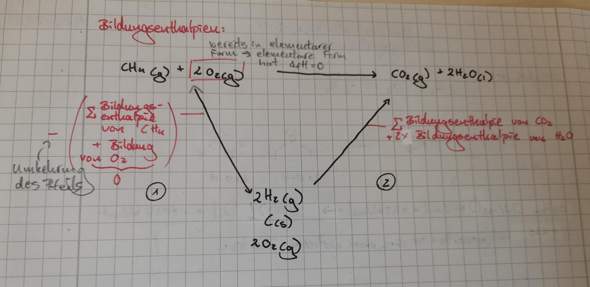 Bildungsenthalpien:
bereits in elementarer
Form → elementare Form
hat ΔfH=0
CH4(g) + 2O2(g) → CO2(g) + 2H2O(l)
Σ Bildungs-
enthalpie
von CH4
+ Bildung
von O2
0
–
Umkehrung
des Pfeils
①
Σ Bildungsenthalpie von CO2
+2x Bildungsenthalpie von H2O
②
2H2(g)
C(s)
2O2(g)